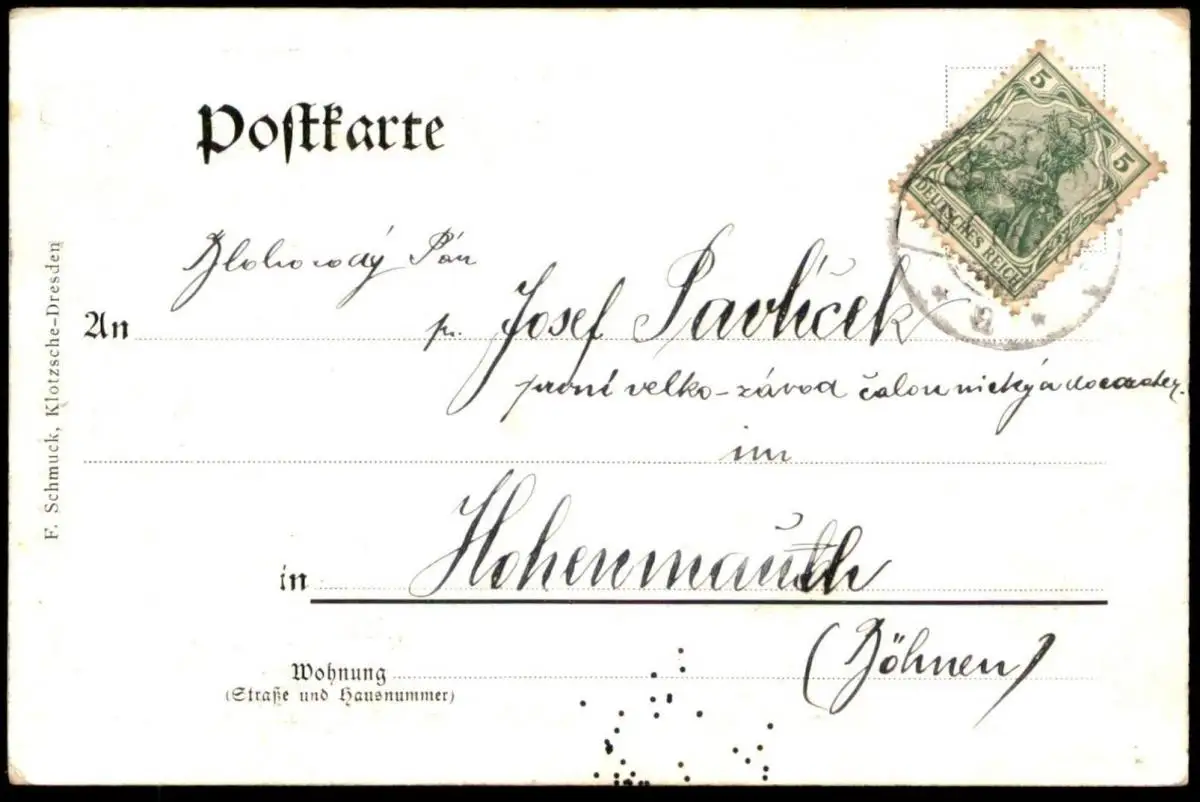 Postkarte
5
5
DEUTSCHES REICH
Blahorodý Pán
An pr. Josef Pavlíček
první velko-závod čalounický a
im
in Hohenmauth
(Böhmen)
Wohnung
(Straße und Hausnummer)
F. Schmuck, Klotzsche-Dresden